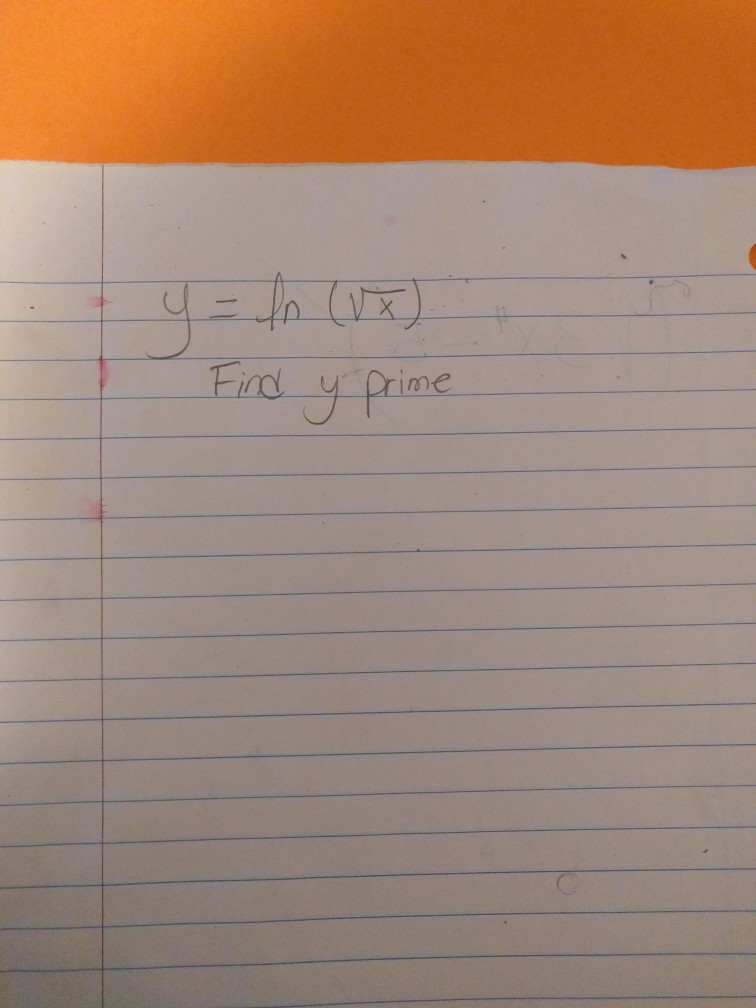 y = ln (√x)
Find y prime